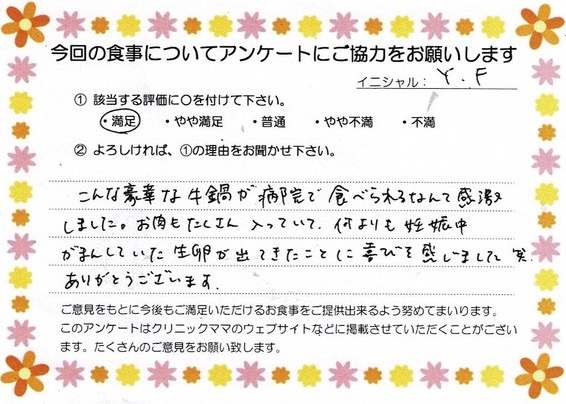 今回の食事についてアンケートにご協力をお願いします
イニシャル: Y.F
① 該当する評価に○を付けて下さい。
・満足 ・やや満足 ・普通 ・やや不満 ・不満
② よろしければ、①の理由をお聞かせ下さい。
こんな豪華な牛鍋が病院で食べられるなんて感激
しました。お肉もたくさん入っていて、何よりも妊娠中
がまんしていた生卵が出てきたことに喜びを感じました笑
ありがとうございます。
ご意見をもとに今後もご満足いただけるお食事をご提供出来るよう努めてまいります。
このアンケートはクリニックママのウェブサイトなどに掲載させていただくことがござい
ます。たくさんのご意見をお願い致します。